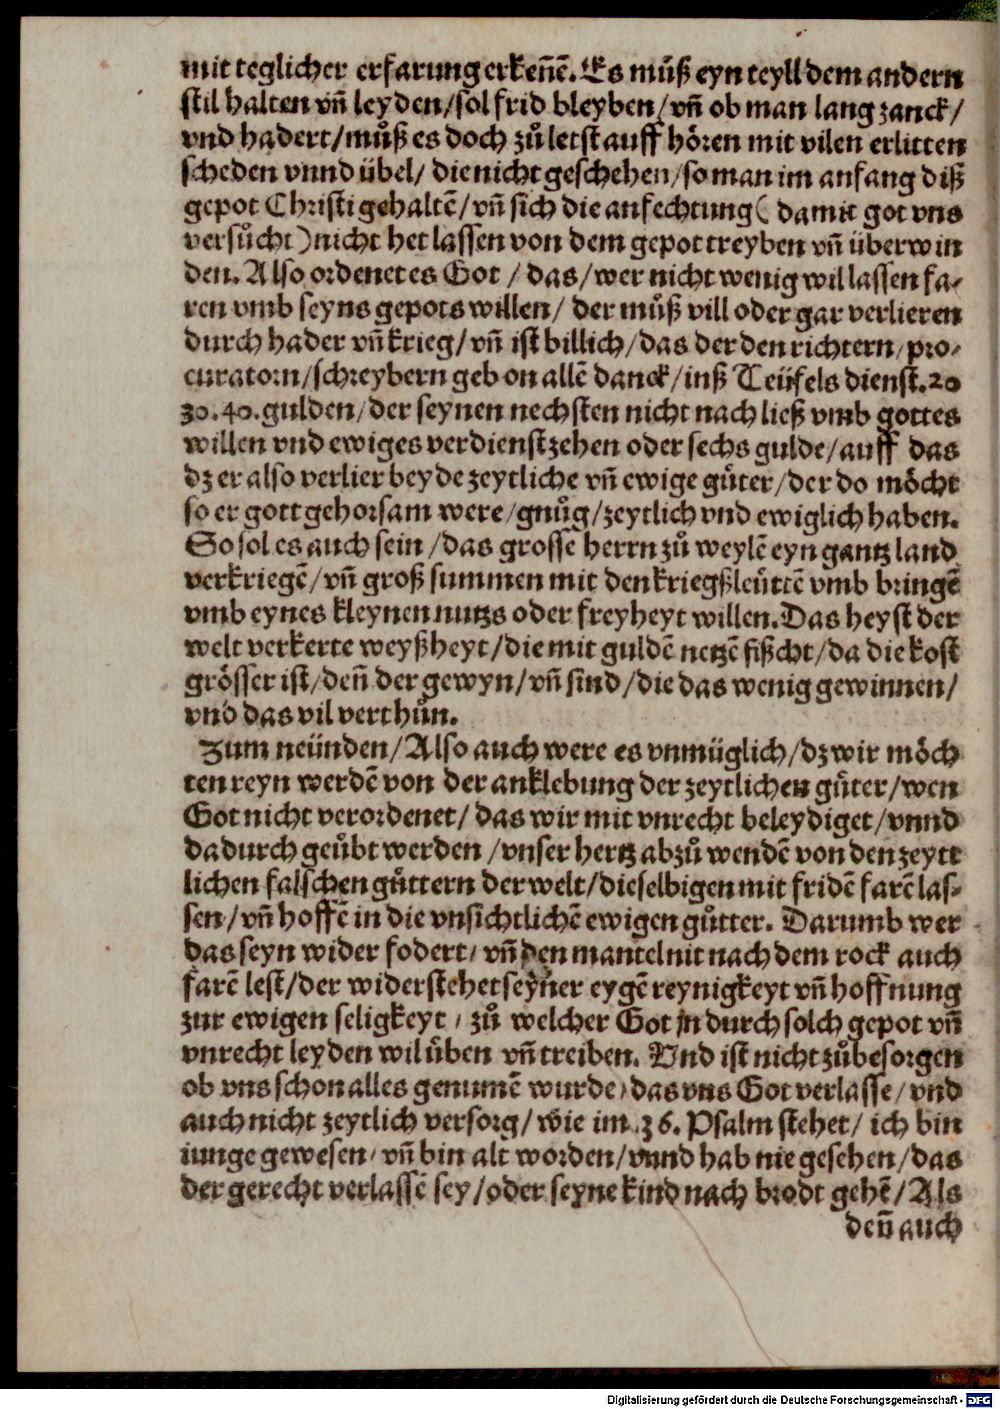 mit teglicher erfarung erkeñē. Es muͦß eyn teyll dem andern
stil halten vñ leyden/sol frid bleyben/vñ ob man lang zanck/
vnd hadert/muͦß es doch zuͦ letst auff hören mit vilen erlitten
scheden vnnd übel/ die nicht geschehen/so man im anfang diß
gepot Christi gehaltē/vñ sich die anfechtung( damit got vns
versuͦcht)nicht het lassen von dem gepot treyben vñ überwin
den. Also ordenet es Got / das/wer nicht wenig wil lassen fa-
ren vmb seyns gepots willen/ der muͦß vill oder gar verlieren
durch hader vñ krieg/vñ ist billich/das der den richtern/pro-
curatorn/schreybern geb on allē danck/inß Teüfels dienst.20
30.40.gulden/der seynen nechsten nicht nach ließ vmb gottes
willen vnd ewiges verdienst zehen oder sechs gulde/auff das
dz er also verlier beyde zeytliche vñ ewige guͤter/der do möcht
so er gott gehorsam were/gnuͦg/zeytlich vnd ewiglich haben.
So sol es auch sein/das grosse herrn zuͦ weylē eyn gantz land
verkriegē/vñ groß summen mit den kriegßleüttē vmb bringē
vmb eynes kleynen nutzs oder freyheyt willen. Das heyst der
welt verkerte weyßheyt/die mit guldē netzē fißcht/da die kost
grösser ist/deñ der gewyn/vñ sind/die das wenig gewinnen/
vnd das vil verthuͦn.
Zum neünden/Also auch were es vnmüglich/dz wir möch
ten reyn werdē von der anklebung der zeytlichen guͤter/wen
Got nicht verordenet/das wir mit vnrecht beleydiget/vnnd
dadurch geuͤbt werden/vnser hertz abzuͦ wendē von den zeytt
lichen falschen guͤttern der welt/dieselbigen mit fridē farē las-
sen/vñ hoffē in die vnsichtlichē ewigen guͤtter. Darumb wer
das seyn wider fodert/vñ den mantel nit nach dem rock auch
farē lest/der widerstehet seyner eygē reynigkeyt vñ hoffnung
zur ewigen seligkeyt/ zuͦ welcher Got in durch solch gepot vñ
vnrecht leyden wil uͤben vñ treiben. Vnd ist nicht zuͦbesorgen
ob vns schon alles genumē wurde/das vns Got verlasse/vnd
auch nicht zeytlich versorg/wie im .36. Psalm stehet/ ich bin
iunge gewesen/vñ bin alt worden/vnnd hab nie gesehen/das
der gerecht verlassē sey/oder seyne kind nach brodt gehē/Als
deñ auch
Digitalisierung gefördert durch die Deutsche Forschungsgemeinschaft - DFG